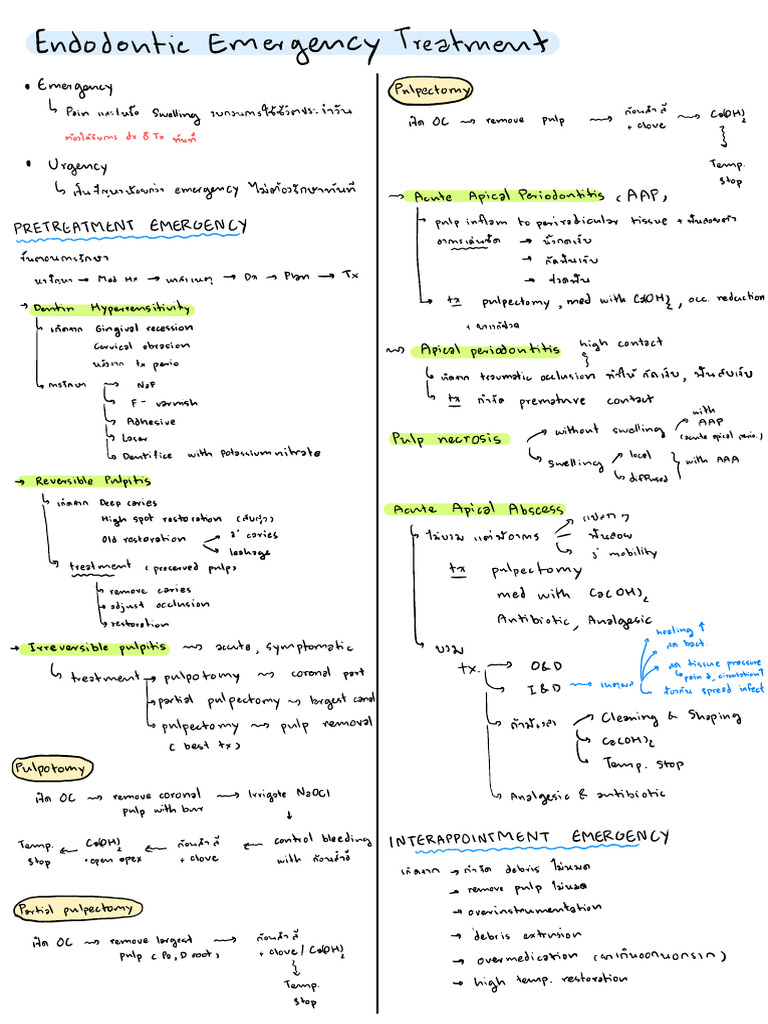 Endodontic Emergency Treatment
• Emergency
↳ Pain และ/หรือ Swelling รบกวนการใช้ชีวิตประจำวัน
ต้องได้รับการ dx & Tx ทันที
• Urgency
↳ เป็นปัญหาน้อยกว่า emergency ไม่ต้องรักษาทันที
PRETREATMENT EMERGENCY
ขั้นตอนการรักษา
→ Med Hx → หาสาเหตุ → Dx → Plan → Tx
→ Dentin Hypersensitivity
↳ เกิดจาก Gingival recession
Cervical abrasion
หลังจาก tx perio
↳ การรักษา → NaF
↳ F- varnish
↳ Adhesive
↳ Laser
↳ Dentifice with Potassium nitrate
→ Reversible Pulpitis
↳ เกิดจาก Deep caries
High spot restoration
Old restoration → 2° caries
→ leakage
↳ treatment (preserved pulp)
→ remove caries
→ adjust occlusion
→ restoration
→ Irreversible pulpitis ⇝ acute, symptomatic
↳ treatment → pulpotomy ⇝ coronal part
→ partial pulpectomy ⇝ largest canal
→ pulpectomy ⇝ pulp removal
(best tx)
Pulpotomy
เปิด OC ⇝ remove coronal → Irrigate NaOCl
pulp with burr
↓
Temp. ← Ca(OH)2 ← ก้อนสำลี ← control bleeding
stop • open apex + clove with ก้อนสำลี
Partial pulpectomy
เปิด OC ⇝ remove largest ⇝ ก้อนสำลี
pulp (Pa, D root) + clove / Ca(OH)2
Temp.
stop
Pulpectomy
เปิด OC ⇝ remove pulp ⇝ ก้อนสำลี ⇝ Ca(OH)2
+ clove
Temp.
stop
→ Acute Apical Periodontitis (AAP)
↳ pulp inflam to periradicular tissue +
→
→ กัดฟันเจ็บ
→ ปวดฟัน
↳ tx pulpectomy, med with Ca(OH)2, occ. reduction
+ ยาแก้ปวด
⇝ Apical periodontitis high contact
↳ เกิดจาก traumatic occlusion ทำให้ กัดเจ็บ,
↳ tx กำจัด premature contact
Pulp necrosis → without swelling → with AAP
(acute apical perio.)
↳ swelling → local } with AAA
→ diffused
Acute Apical Abscess
↳ ไม่บวม แต่มีอาการ →
→
→ mobility
tx pulpectomy
med with Ca(OH)2
Antibiotic, Analgesic
↳ บวม
tx. → O&D
→ I&D ⇝ → healing ↑
→ ลด bact.
→ ลด tissue pressure
↳ pain ↓, circulation ↑
→ ป้องกัน spread infect
→ → Cleaning & Shaping
→ Ca(OH)2
→ Temp. stop
↳ Analgesic & antibiotic
INTERAPPOINTMENT EMERGENCY
เกิดจาก → กำจัด debris ไม่หมด
→ remove pulp ไม่หมด
→ overinstrumentation
→ debris extrusion
→ overmedication (ยาเกินออกนอกราก)
→ high temp. restoration